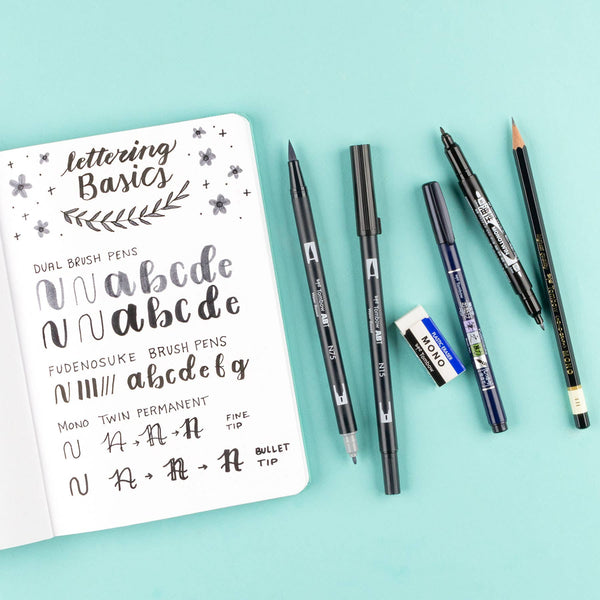 lettering
Basics
DUAL BRUSH PENS
N N abcde
N N abcde
FUDENOSUKE BRUSH PENS
N abcdefg
MONO TWIN PERMANENT
N A A A FINE TIP
N A A A BULLET TIP
Tombow ABT
N75
Tombow ABT
N15
PLASTIC ERASER
MONO
Tombow
MONO